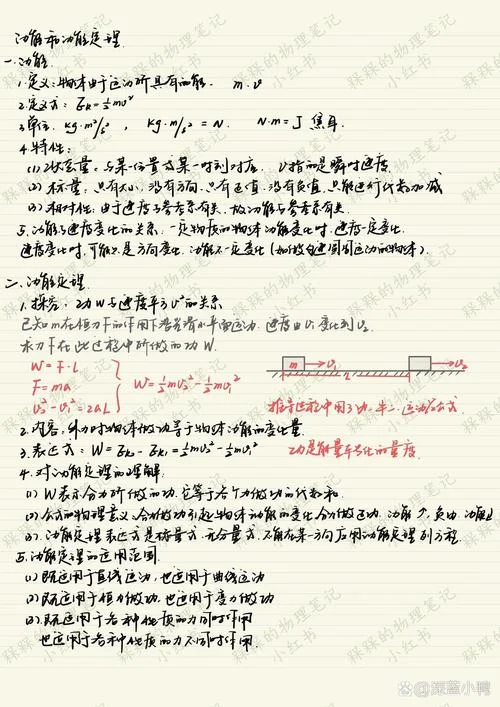 动能和动能定理
一.动能
1.定义:物体由于运动所具有的能. m.v
2.定义式: Ek=½mv²
3.单位. kg·m²/s², kg·m/s² = N. N·m=J 焦耳
4.特性:
(1)状态量. 与某一位置或某一时刻对应. v指的是瞬时速度
(2)标量. 只有大小, 没有方向. 只有正值. 没有负值. 只能进行代数加减
(3)相对性: 由于速度与参考系有关, 故动能与参考系有关.
5.动能与速度变化的关系. 一定物质的物体动能变化时. 速度一定变化.
速度变化时, 可能只是方向变化. 动能不一定变化 (如做匀速圆周运动的物体).
二.动能定理
1.探究: 功W与速度平方v²的关系
已知m在恒力F的作用下沿光滑水平面运动. 速度由v₁变化到v₂.
求力F在此过程中所做的功W.
W=F·L
F=ma
v₂²-v₁²=2aL
W=½mv₂²-½mv₁²
m v₁ L v₂
推导过程中用了功. 牛二. 运动公式.
2.内容. 外力对物体做功等于物体动能的变化量.
3.表达式: W=Ek₂-Ek₁=½mv₂²-½mv₁²
功是能量转化的量度.
4.对动能定理的理解.
(1) W表示合力所做的功. 它等于各个力做功的代数和.
(2) 公式的物理意义. 合力做功引起物体动能的变化. 合力做正功. 动能↑. 负功. 动能↓
(3). 动能定理表达式是标量式. 无分量式. 不能在某一方向启用动能定理列方程.
5.动能定理的适用范围.
(1) 既适用于直线运动, 也适用于曲线运动
(2) 既适用于恒力做功. 也适用于变力做功
(3) 既适用于各种性质的力同时作用
也适用于各种性质的力不同时作用.
槑槑的物理笔记
小红书
百家号/深蓝小鸭